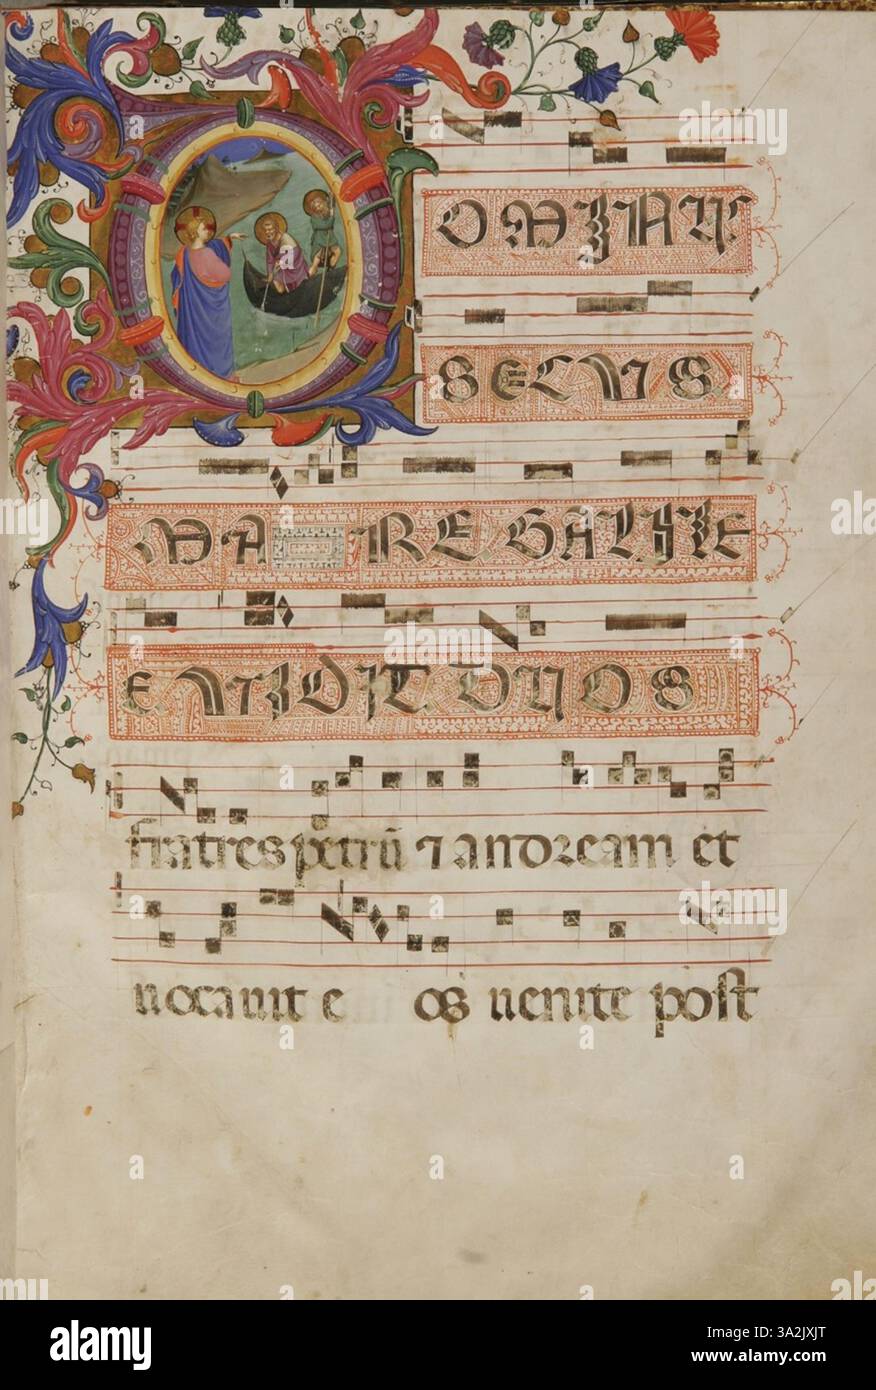 DOMINUS
SECUS
MARE GALILEE
E VIDIT DUOS
fratres petrū ⁊ andream et
vocavit e os venite post
alamy
Image ID: 3A2JXJT
www.alamy.com